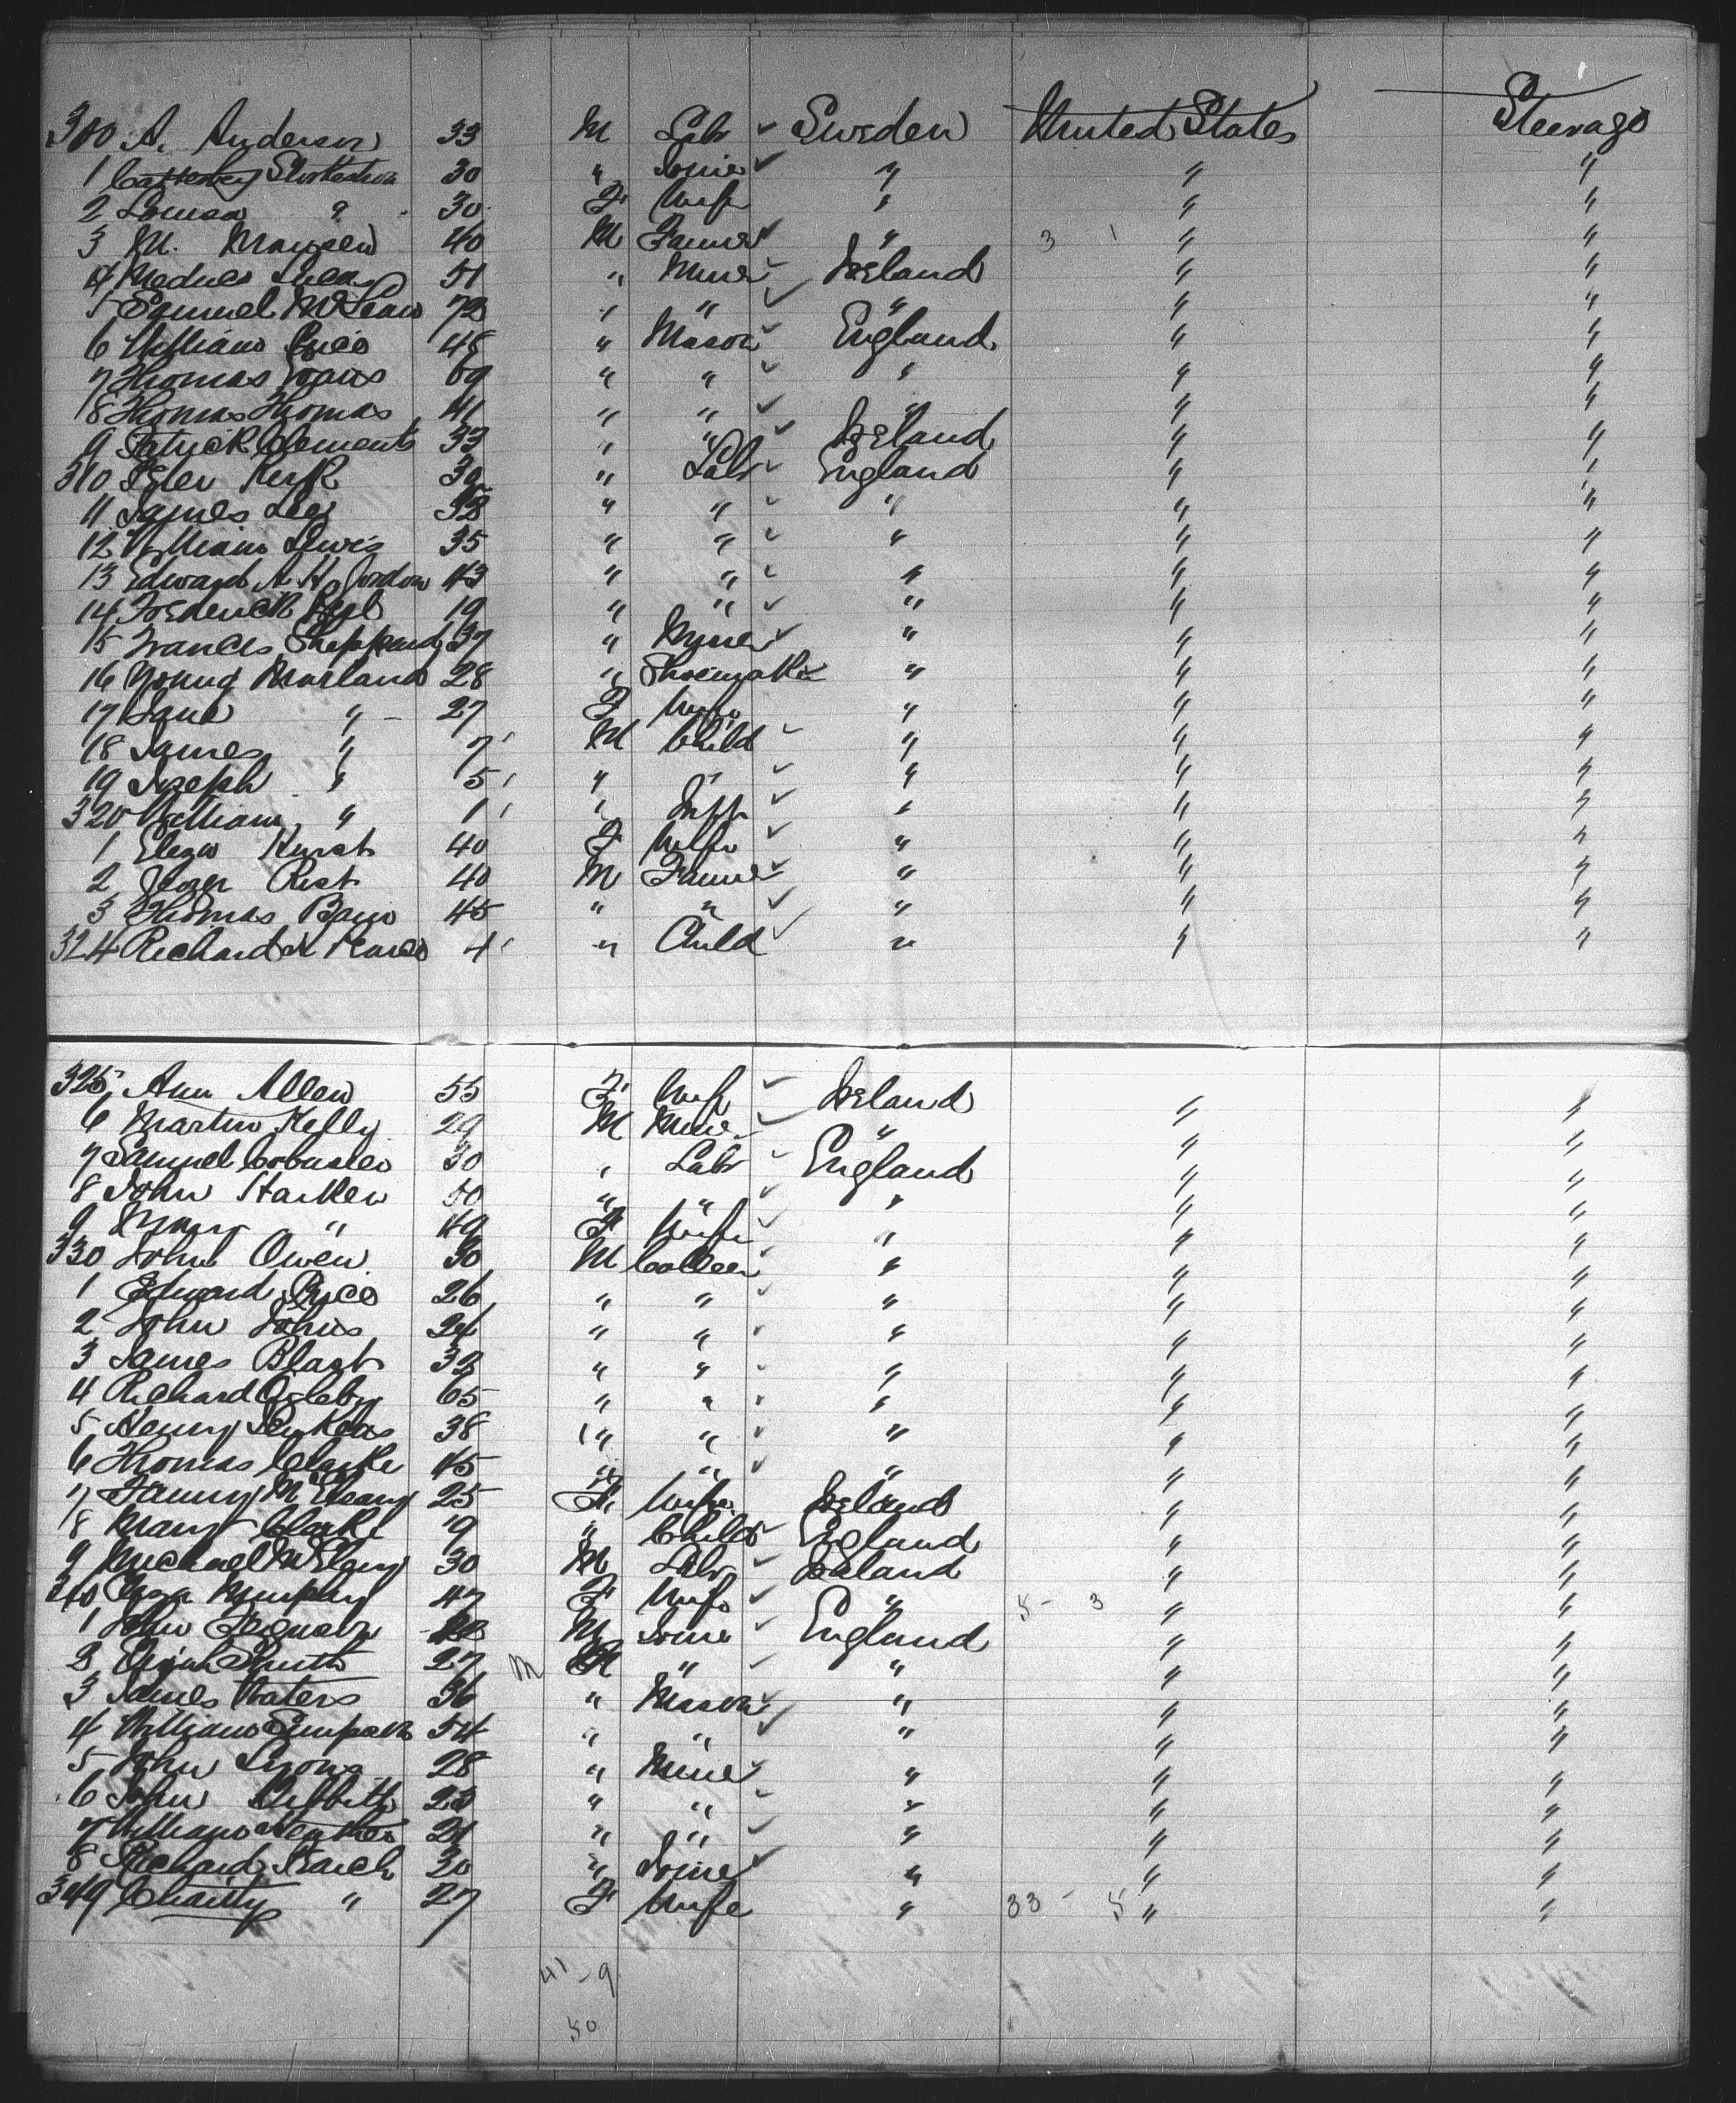 300 A. Anderson 33 M Labr ✓ Sweden United States Steerage
1 30 " Joiner ✓ " " "
2 Louisa " 30 F Wife " " "
3 M. 40 M Farmer ✓ " 3 1 " "
4 51 " Miner ✓ Ireland " "
5 Samuel McLean 73 " " ✓ " " "
6 William Price 48 " Mason ✓ England " "
7 Thomas Evans 69 " " ✓ " " "
8 Thomas Thomas 41 " " ✓ " " "
9 Patrick Clements 33 " " ✓ Ireland " "
310 Peter Kirk 30 " Labr ✓ England " "
11 James Lee 38 " " ✓ " " "
12 William Lewis 35 " " ✓ " " "
13 Edward A. H. Jordon 43 " " ✓ " " "
14 Frederick 19 " " ✓ " " "
15 Francis Sheppard 37 " Miner ✓ " " "
16 Young Marland 28 " Shoemaker " " "
17 Jane " 27 F Wife " " "
18 James " 7 M Child ✓ " " "
19 Joseph " 5 " " ✓ " " "
320 William " 1 " Inft ✓ " " "
1 Eliza Hurst 40 F Wife ✓ " " "
2 Rist 40 M Farmer ✓ " " "
3 Thomas 45 " " ✓ " " "
324 Richard 4 " Child ✓ " " "
325 Ann Allen 55 F Wife ✓ Ireland " "
6 Martin Kelly 29 M Miner ✓ " " "
7 Samuel 30 " Labr ✓ England " "
8 John Harker 50 " " ✓ " " "
9 Mary " 49 F Wife ✓ " " "
330 John Owen 30 M Collier ✓ " " "
1 Edward Price 26 " " " " "
2 John Johns 24 " " ✓ " " "
3 James Blast 32 " " ✓ " " "
4 Richard Ogleby 65 " " ✓ " " "
5 Henry 38 " " ✓ " " "
6 Thomas Clarke 45 " " ✓ " " "
7 Fanny 25 F Wife Ireland " "
8 Mary Clarke 9 " Child ✓ England " "
9 Michael 30 M Labr ✓ Ireland " "
340 Murphy 47 F Wife ✓ " 5 - 3 " "
1 John M Joiner ✓ England " "
2 Smith 27 M " ✓ " " "
3 James Waters 36 " Mason ✓ " " "
4 William Simpson 54 " " ✓ " " "
5 John Lyons 28 " Miner ✓ " " "
6 John 23 " " ✓ " " "
7 William 21 " " ✓ " " "
8 Richard 30 " Joiner ✓ " " "
349 Charity " 27 F Wife " 33 - 5 " "
41 - 9
50